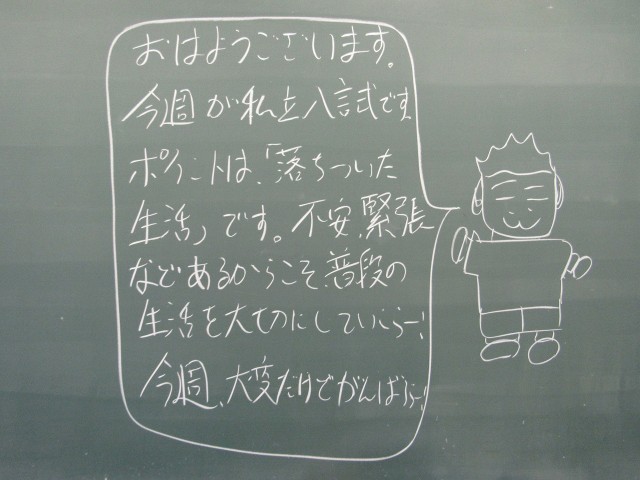 おはようございます。
今週が私立入試です
ポイントは、「落ちついた
生活」です。不安、緊張
などあるからこそ、普段の
生活を大切にしていこう!
今週、大変だけどがんばろう!